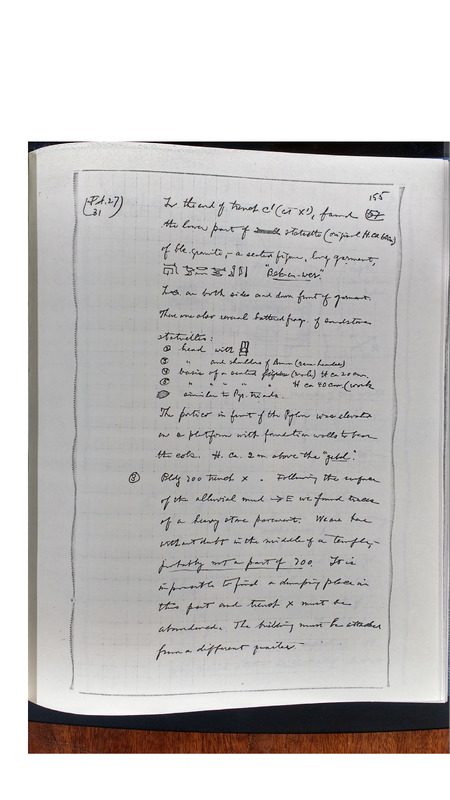 155
(Jd. 27) 31
In the end of trench C¹ (at X¹), found
the lower part of statuette (original H. ca 60cm)
of blk. granite, – a seated figure, long garment,
"Bek-en-wer."
on both sides and down front of garment.
There were also several battered frags. of sandstone
statuettes:
① head with
② " and shoulders of (ram headed)
④ basis of a seated (male) H ca 20 cm.
⑤ " " " " " H ca 40 cm. (work
similar to Pyr. triads.
The portico in front of the Pylon was elevated
on a platform with foundation walls to bear
the cols. H. ca. 2 m above the "gebel".
③ Bldg 700 trench X. Following the surface
of the alluvial mud → E we found traces
of a heavy stone pavement. We are here
without doubt in the middle of a temple,
probably not a part of 700. It is
impossible to find a dumping place in
this part and trench X must be
abandoned. The building must be attacked
from a different quarter.